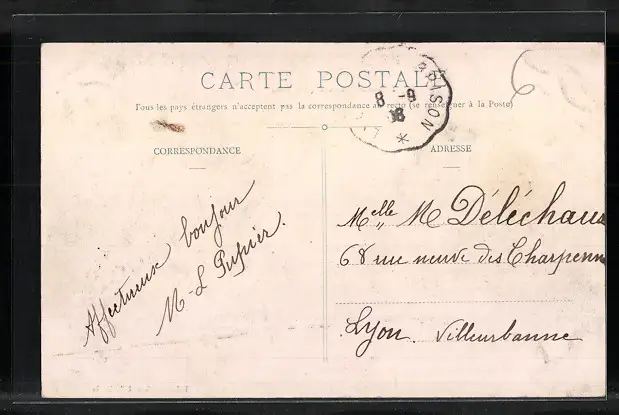 CARTE POSTALE
Tous les pays étrangers n'acceptent pas la correspondance au recto (se renseigner à la Poste)
8 -9
08
CORRESPONDANCE
ADRESSE
Affectueux bonjour
M-L Pupier.
Melle M Déléchaux
68 rue neuve des Charpenn
Lyon. Villeurbanne